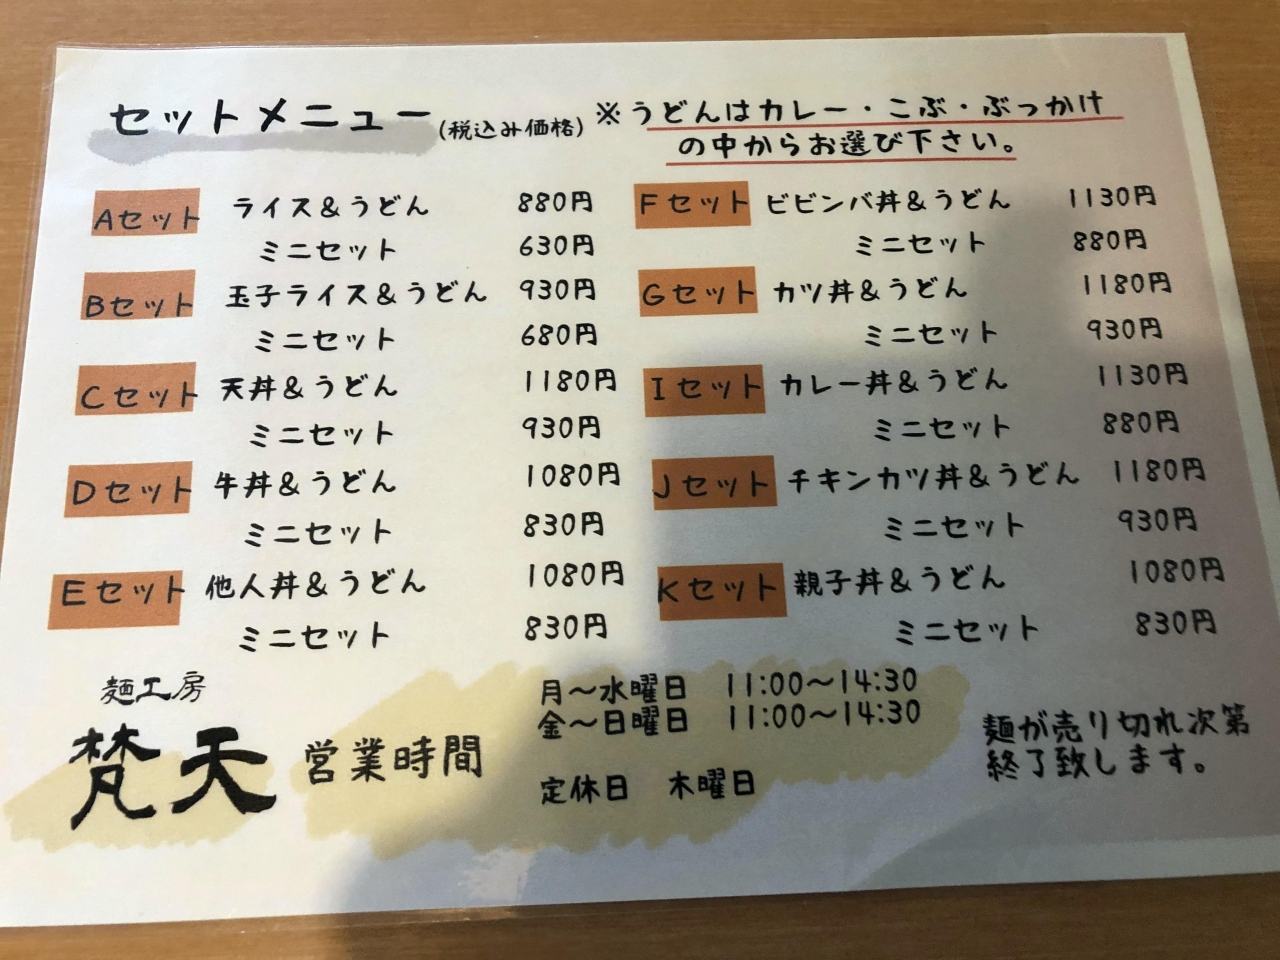 セットメニュー(税込み価格)
※うどんはカレー・こぶ・ぶっかけ
の中からお選び下さい。
Aセット ライス&うどん 880円
ミニセット 630円
Bセット 玉子ライス&うどん 930円
ミニセット 680円
Cセット 天丼&うどん 1180円
ミニセット 930円
Dセット 牛丼&うどん 1080円
ミニセット 830円
Eセット 他人丼&うどん 1080円
ミニセット 830円
Fセット ビビンバ丼&うどん 1130円
ミニセット 880円
Gセット カツ丼&うどん 1180円
ミニセット 930円
Iセット カレー丼&うどん 1130円
ミニセット 880円
Jセット チキンカツ丼&うどん 1180円
ミニセット 930円
Kセット 親子丼&うどん 1080円
ミニセット 830円
麺工房
梵天
営業時間
月～水曜日 11:00～14:30
金～日曜日 11:00～14:30
定休日 木曜日
麺が売り切れ次第
終了致します。